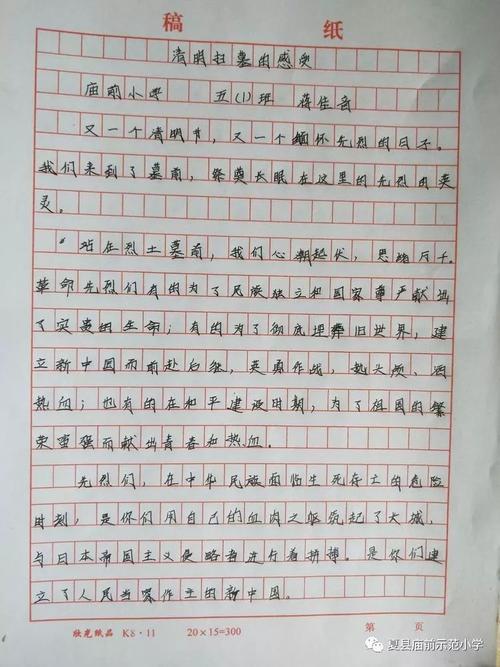 稿 纸
清明扫墓的感受
庙前小学 五(1)班 蒋佳音
又一个清明节，又一个缅怀先烈的日子。
我们来到了墓前，祭奠长眠在这里的先烈的英
灵。
站在烈士墓前，我们心潮起伏，思绪万千。
革命先烈们有的为了民族独立和国家尊严献出
了宝贵的生命；有的为了彻底埋葬旧世界，建
立新中国而前赴后继，英勇作战，抛头颅、洒
热血；也有的在和平建设时期，为了祖国的繁
荣富强而献出青春和热血。
先烈们，在中华民族面临生死存亡的危险
时刻，是你们用自己的血肉之躯筑起了大城，
与日本帝国主义侵略者进行着拼搏。是你们建
立了人民当家作主的新中国。
欣光纸品 K8·11 20×15=300 第 页
夏县庙前示范小学